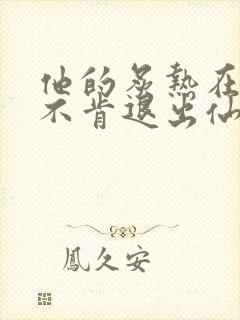 他的炙熱在
不肯退出仙
鳳久安